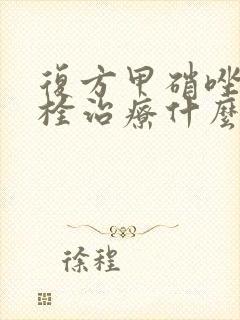 復方甲硝唑
栓治療什麼
徐程